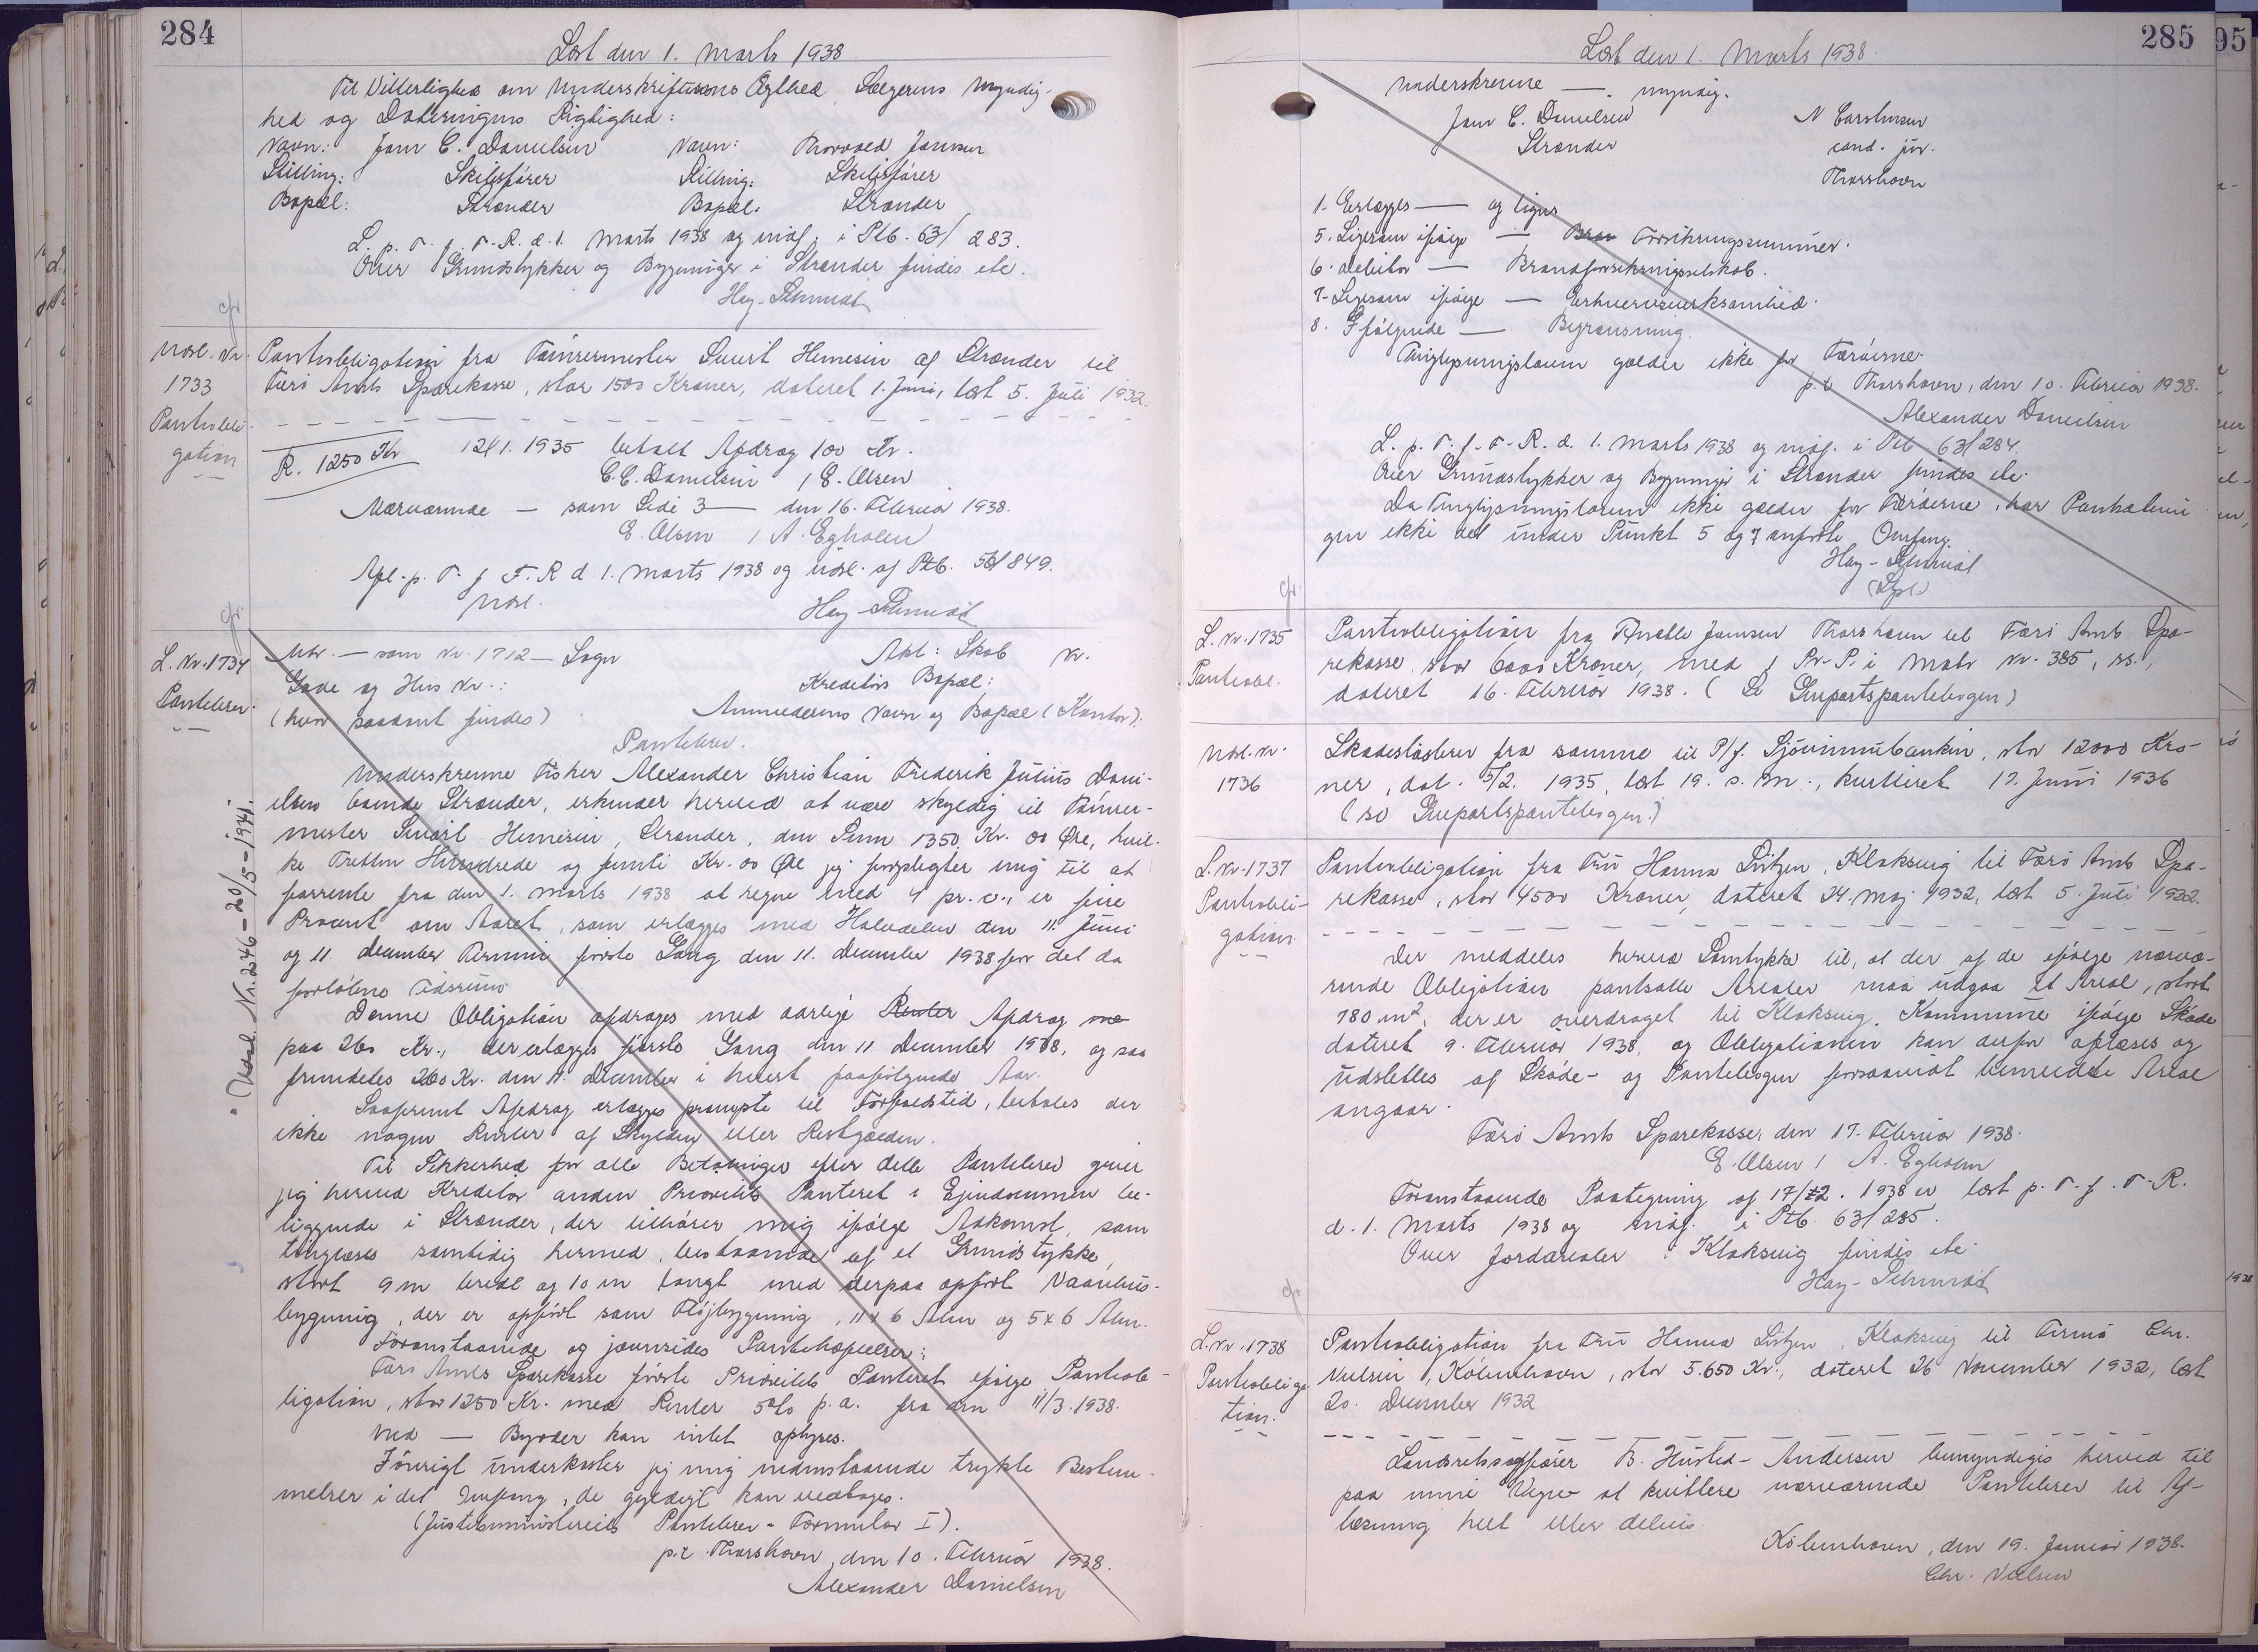 284
Læst den 1. Marts 1938
Til Vitterlighed om Underskriftens Ægthed, Sælgerens Myndig-
hed og Dateringens Rigtighed:
Navn: Jam C. Danielsen Navn: Thorvald Jansen
Stilling: Skibsfører Stilling: Skibsfører
Bopæl: Strænder Bopæl: Strænder
L. p. T. f. F. R. d. 1. Marts 1938 og indf. i Ptb. 63/283.
Over Grundstykker og Bygninger i Strænder findes etc.
Hey-Schmidt
Udsl. Nr.
1733
Pantobli-
gation
Pantobligation fra Tømrermester Sivert Henesen af Strænder til
Færø Amts Sparekasse, stor 1500 Kroner, dateret 1. Juni, læst 5. Juli 1932.
R. 1250 Kr
12/1. 1935 betalt Afdrag 100 Kr.
C. C. Danielsen / E. Olsen
Nærværende — som Side 3 — den 16. Februar 1938.
E. Olsen / A. Egholm
Afl. p. T. f. F. R d. 1. Marts 1938 og udsl. af Ptb. 56/849.
Udsl. Hey-Schmidt
L. Nr. 1734
Pantebrev.
Mtr. — som Nr. 1712 — Sogn Akt: Skab Nr.
Gade og Hus Nr.: Kreditors Bopæl:
(hvor saadant findes) Anmelderens Navn og Bopæl (Kontor).
Pantebrev.
Underskrevne Fisker Alexander Christian Frederik Julius Dani-
elsen boende Strænder, erkender herved at være skyldig til Tømrer-
mester Sivert Henesen, Strænder, den Sum 1350 Kr. 00 Øre, hvil-
ke Tretten Hundrede og femti Kr. 00 Øre jeg forpligter mig til at
forrente fra den 1. Marts 1938 at regne med 4 pr. c., er fire
Procent om Aaret, som erlægges med Halvdelen den 11. Juni
og 11. December Termin første Gang den 11. December 1938 for det da
forløbne Tidsrum.
Denne Obligation afdrages med aarlige Renter Afdrag me
paa 260 Kr., der erlægges første Gang den 11 December 1938, og saa
fremdeles 260 Kr. den 11. December i hvert paafølgende Aar.
Saafremt Afdrag erlægges prompte til Forfaldstid, betales der
ikke nogen Renter af Skylden eller Restgælden.
Til Sikkerhed for alle Betalinger efter dette Pantebrev giver
jeg herved Kreditor anden Prioritets Panteret i Ejendommen be-
liggende i Strænder, der tilhører mig ifølge Adkomst, som
tinglæses samtidig hermed, bestaaende af et Grundstykke,
stort 9 m bredt og 10 m langt med derpaa opført Vaanhus-
bygning, der er opført som Fløjbygning, 11 x 6 Alen og 5 x 6 Alen.
Foranstaaende og jævnsides Pantehæftelser:
Færø Amts Sparekasse første Prioritets Panteret ifølge Pantob-
ligation, stor 1250 Kr. med Renter 5% p. a. fra den 11/3. 1938.
Ved — Byrder kan intet oplyses.
Iøvrigt underkaster jeg mig nedenstaaende trykte Bestem-
melser i det Omfang, de gyldigt kan vedtages.
(Justitsministeriets Pantebrev-Formular I).
p. t. Thorshavn, den 10. Februar 1938.
Alexander Danielsen
Udsl. Nr. 246 - 20/5 - 1941.
285
Læst den 1. Marts 1938.
Underskrevne — myndig.
Jam C. Danielsen N Carstensen
Strænder cand. jur.
Thorshavn
1. Erlægges — og lignes
5. Ligesom ifølge — Bran Forsikringssummer.
6. Debitor — Brandforsikringsselskab.
7. Ligesom ifølge — Erhvervsvirksomhed.
8. Ifølgende — Begrænsning.
Tinglysningsloven gælder ikke for Færøerne.
p. t. Thorshavn, den 10. Februar 1938.
Alexander Danielsen
L. p. T. f. F. R. d. 1. Marts 1938 og indf. i Ptb 63/284.
Over Grundstykker og Bygninger i Strænder findes etc.
Da Tinglysningsloven ikke gælder for Færøerne, har Panthæftel-
sen ikke det under Punkt 5 og 7 anførte Omfang.
Hey-Schmidt
L. Nr. 1735
Pantobl.
Pantobligation fra Jansen Thorshavn til Færø Amts Spa-
rekasse, stor 6000 Kroner, med 1 Pr. P. i Matr Nr. 385,
dateret 16. Februar 1938. (Se Enepartspantebogen)
Udsl. Nr.
1736
Skadesløsbrev fra samme til P/f. Sjóvinnubankin, stor 12000 Kro-
ner, dat. 5/2. 1935, læst 19. s. M., kvitteret 17. Juni 1936
(se Enepartspantebogen.)
L. Nr. 1737
Pantobli-
gation.
Pantobligation fra Fru Hanna Lützen, Klaksvig til Færø Amts Spa-
rekasse, stor 4500 Kroner, dateret 24. Maj 1932, læst 5. Juli 1932.
Der meddeles herved Samtykke til, at der af de ifølge nærvæ-
rende Obligation pantsatte Arealer maa udgaa et Areal, stort
780 m², der er overdraget til Klaksvig Kommune ifølge Skøde
dateret 9. Februar 1938, og Obligationen kan derfor aflæses og
udslettes af Skøde- og Pantebogen forsaavidt bemeldte Areal
angaar.
Færø Amts Sparekasse, den 17. Februar 1938.
E. Olsen / A. Egholm
Foranstaaende Paategning af 17/2. 1938 er læst p. T. f. F. R.
d. 1. Marts 1938 og indf. i Ptb. 63/285.
Over Jordarealer i Klaksvig findes etc.
Hey-Schmidt
L. Nr. 1738
Pantobliga-
tion.
Pantobligation fra Fru Hanna Lützen, Klaksvig til Firma Chr.
Nielsen, København, stor 5.650 Kr., dateret 26 November 1932, læst
20. December 1932
Landsretssagfører B. Husted-Andersen bemyndiges herved til
paa mine Vegne at kvittere nærværende Pantebrev til Af-
læsning helt eller delvis.
København, den 19. Januar 1938.
Chr. Nielsen
95